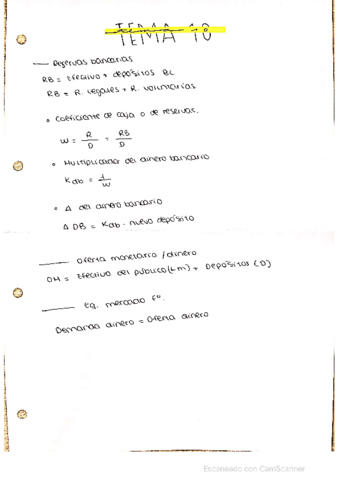 TEMA 18
Reservas bancarias
RB = Efectivo + depósitos BC
RB = R. legales + R. voluntarias
• Coeficiente de caja o de reservas.
W = R/D = RB/D
• Multiplicador del dinero bancario
Kdb = 1/W
• Δ del dinero bancario
Δ DB = Kdb · nuevo depósito
Oferta monetaria / dinero
OM = Efectivo del público (Lm) + Depósitos (D)
Eq. mercado
Demanda dinero = Oferta dinero
Escaneado con CamScanner